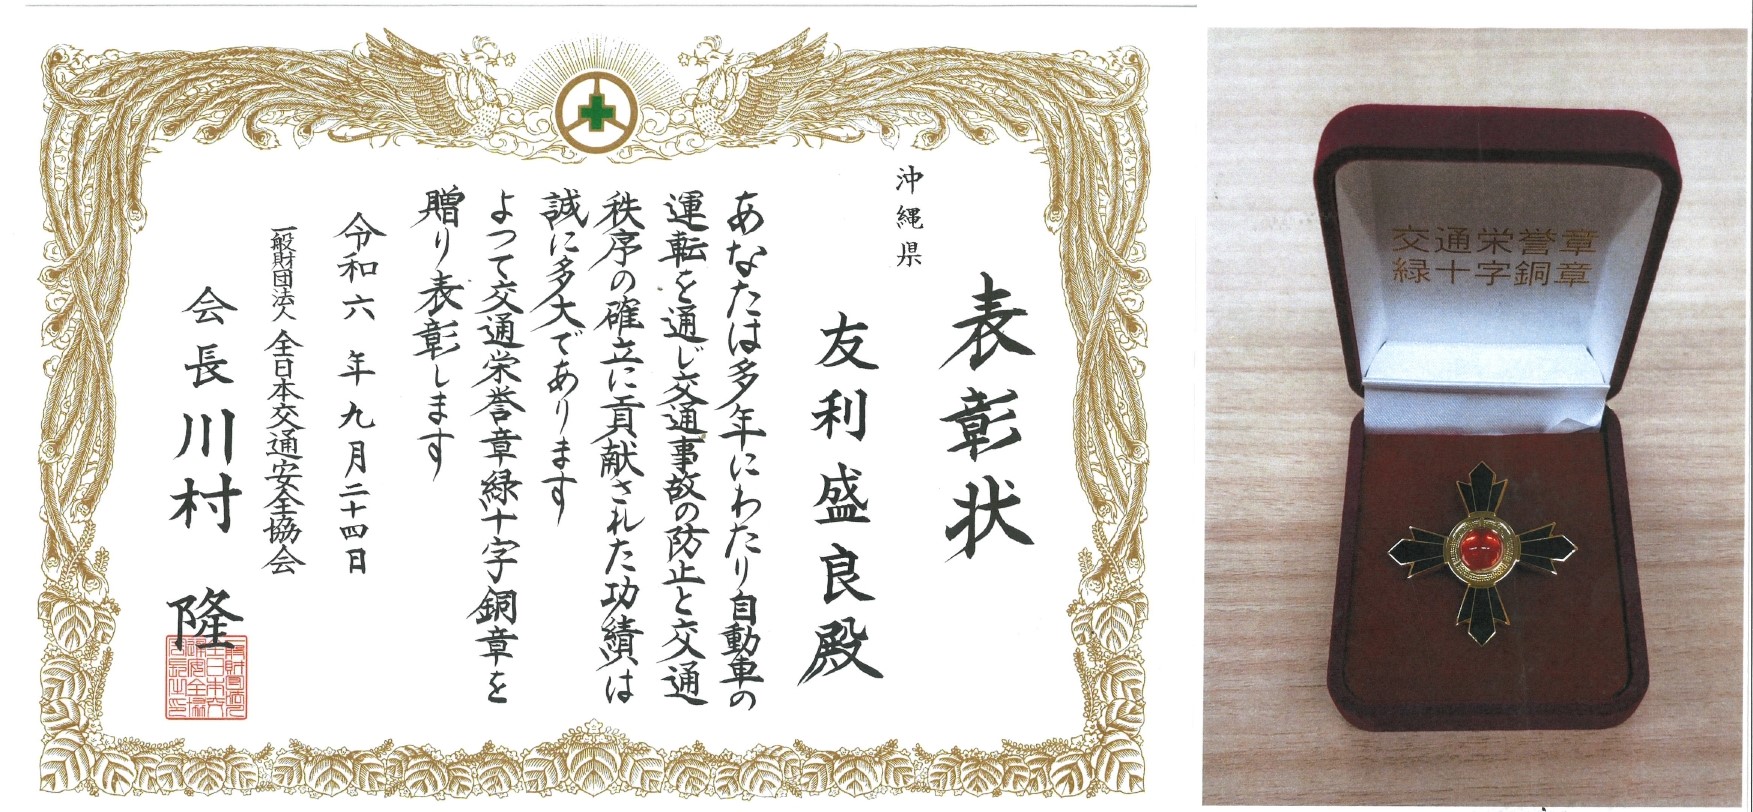 表彰状
沖縄県
友利盛良殿
あなたは多年にわたり自動車の
運転を通じ交通事故の防止と交通
秩序の確立に貢献された功績は
誠に多大であります
よって交通栄誉章緑十字銅章を
贈り表彰します
令和六年九月二十四日
一般財団法人 全日本交通安全協会
会長 川村 隆
交通栄誉章
緑十字銅章